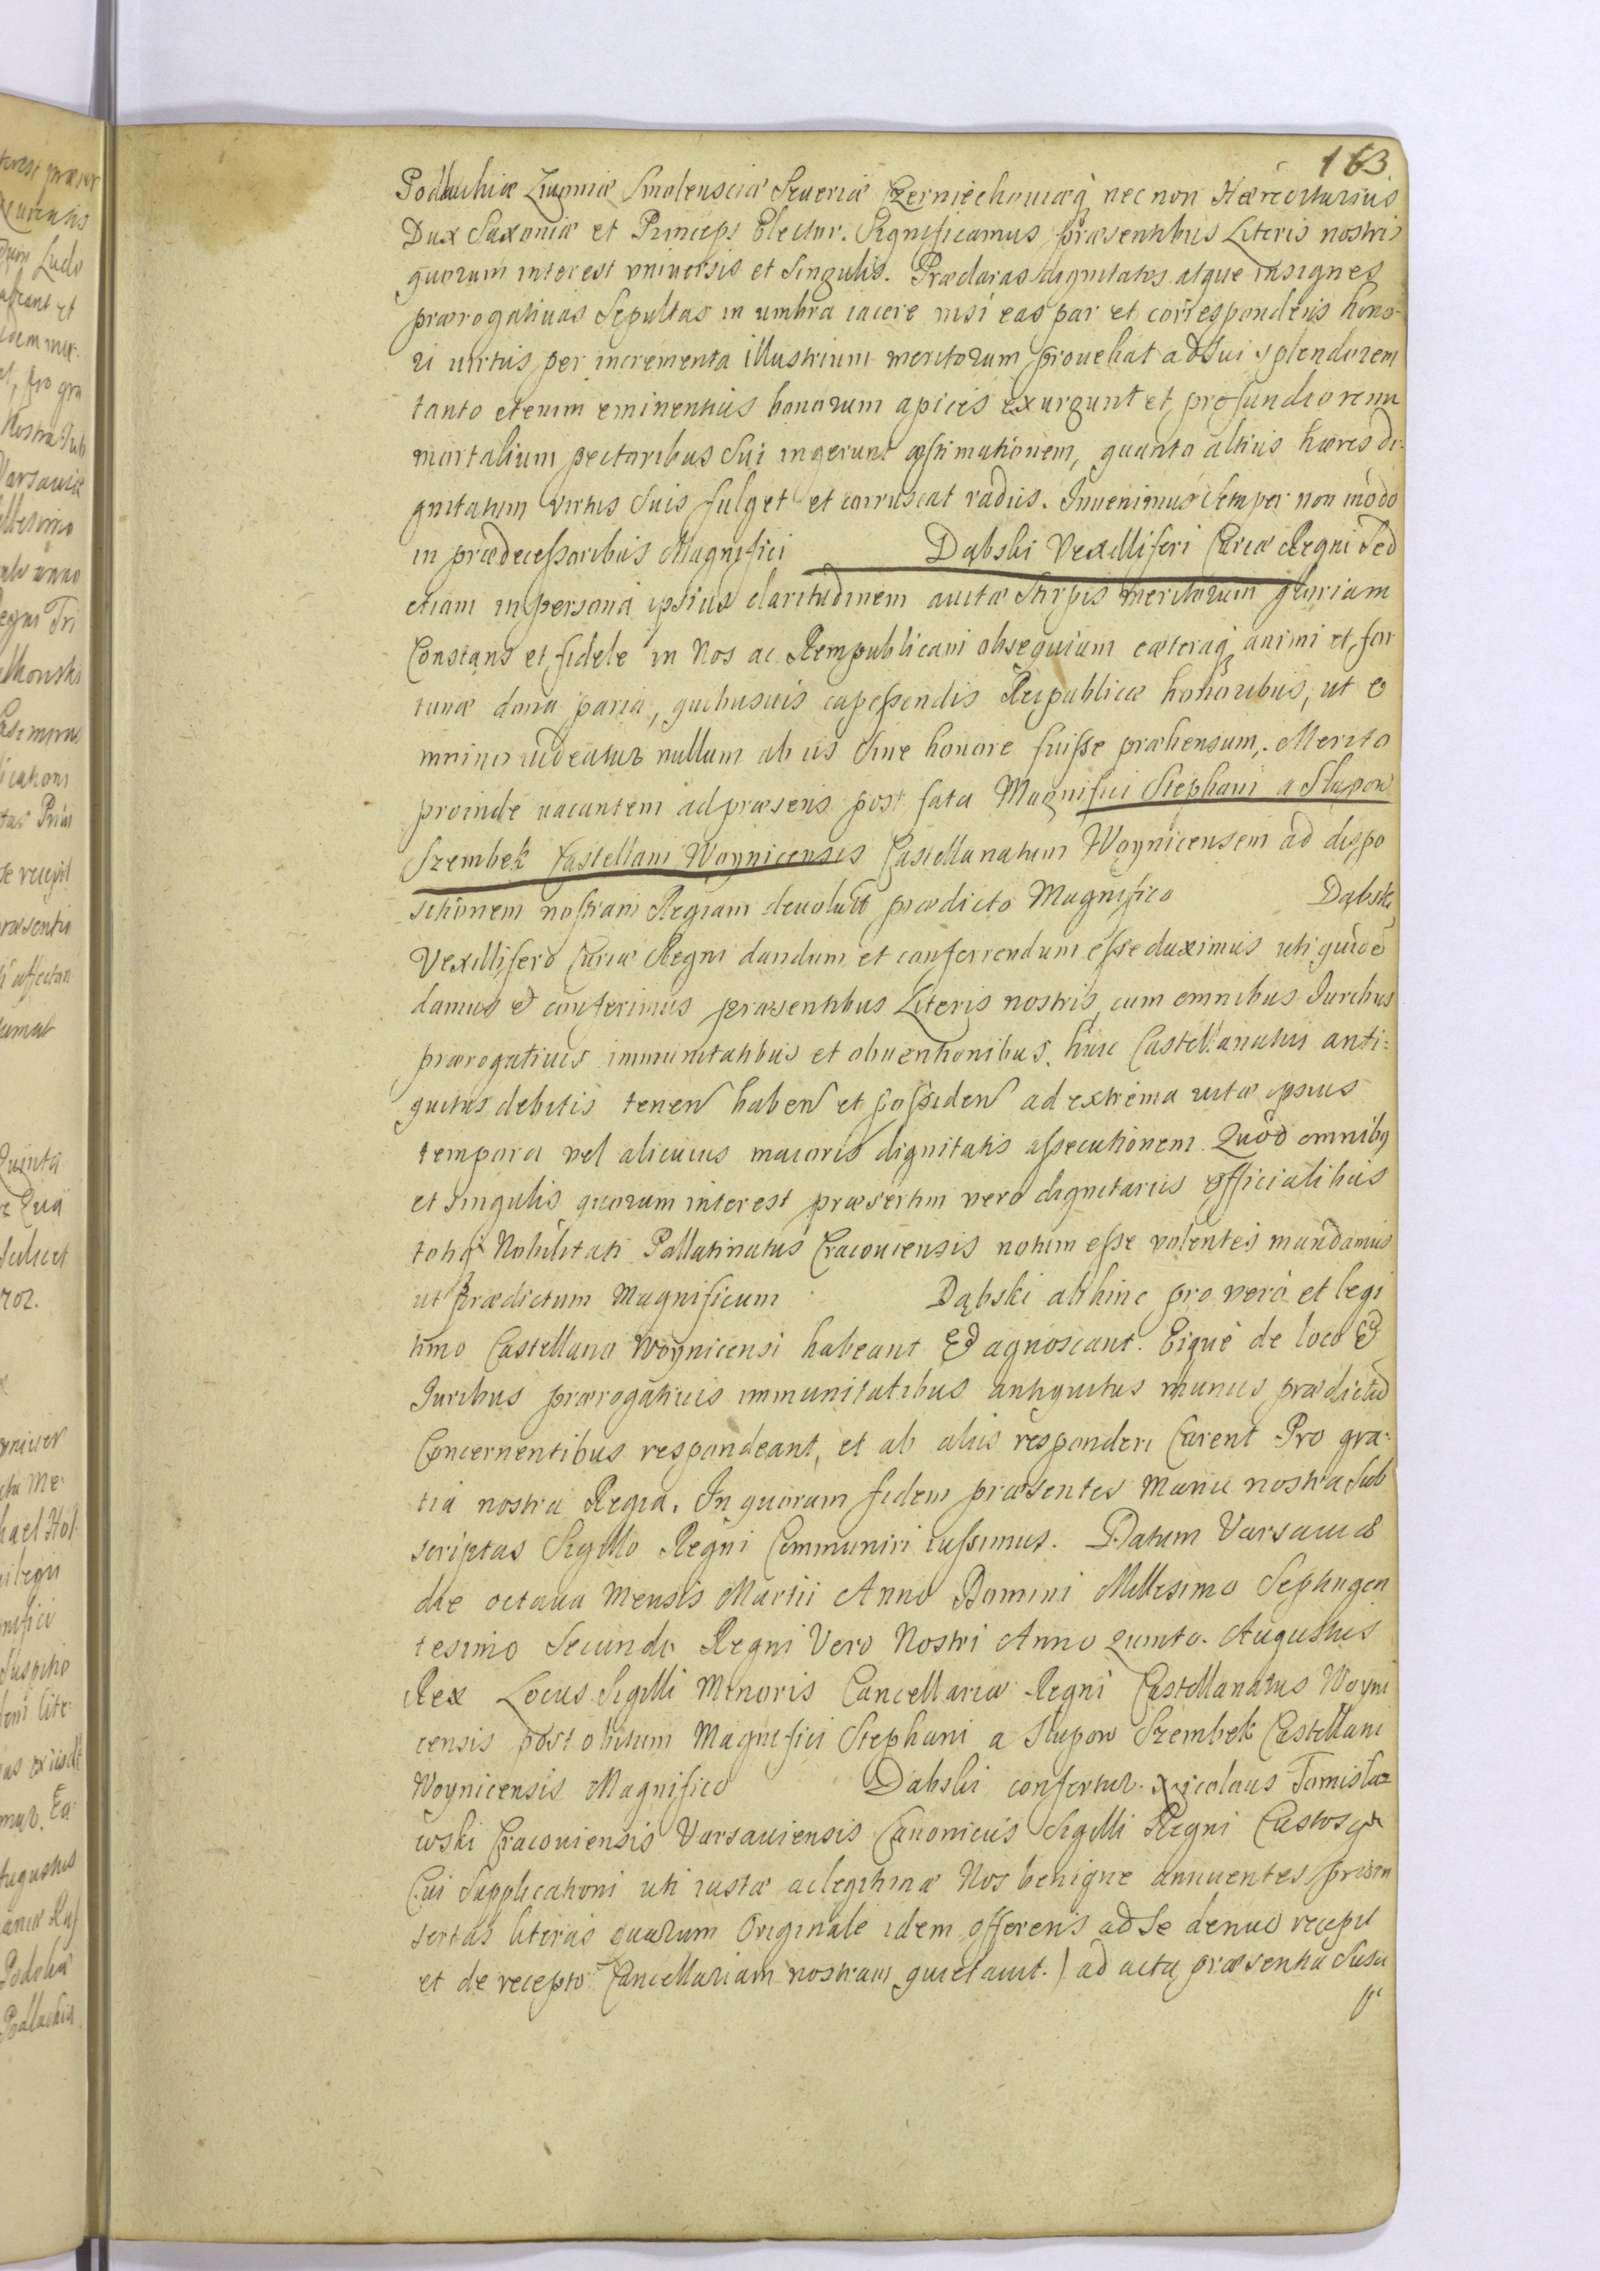 163
Podlachiæ Livoniæ Smolensciæ Severiæ Czerniechoviæq nec non Hæreditarius
Dux Saxoniæ et Princeps Elector. Significamus præsentibus Literis nostris
quorum interest universis et singulis. Præclaras dignitates atque insignes
prærogativas sepultas in umbra iacere nisi eas par et correspondens hono-
ri virtus per incrementa illustrium meritorum provehat ad sui splendorem
tanto etenim eminentius honorum apices exurgunt et profundiorem
mortalium pectoribus sui ingerunt æstimationem, quanto altius hæres di-
gnitatum virtus suis fulget et corruscat radiis. Invenimus semper non modo
in prædecessoribus Magnifici Dąbski Vexilliferi Curiæ Regni sed
etiam in persona ipsius claritudinem avitæ stirpis meritorum gloriam
Constans et fidele in Nos ac Rempublicam obsequium cæteraq animi et for
tunæ dona paria, quibusvis capessendis Reipublicæ honoribus, ut o
mnino videatur nullum ab iis sine honore fuisse præhensum. Merito
proinde vacantem ad præsens post fata Magnifici Stephani a Słupow
Szembek Castellani Woynicensis Castellanatum Woynicensem ad dispo
sitionem nostram Regiam devolutū prædicto Magnifico Dąbski
Vexillifero Curiæ Regni dandum et conferrendum esse duximus uti quidē
damus & conferimus præsentibus Literis nostris, cum omnibus Iuribus
prærogativis immunitatibus et obventionibus huic Castellanatui anti=
quitus debitis tenen haben et possiden ad extrema vitæ ipsius
tempora vel alicuius maioris dignitatis assecutionem. Quod omnibq
et singulis quorum interest præsertim vero dignitariis officialibus
totiq Nobilitati Pallatinatus Cracoviensis notum esse volentes mandamus
ut prædictum Magnificum Dąbski abhinc pro vero et legi
timo Castellano Woynicensi habeant & agnoscant. Eique de loco &
Iuribus prærogativis immunitatibus antiquitus munus prædictū
Concernentibus respondeant, et ab aliis responderi Curent Pro gra-
tia nostra Regia. In quorum fidem præsentes Manu nostra sub
scriptas Sigillo Regni Communiri iussimus. Datum Varsaviæ
die octava Mensis Martii Anno Domini Millesimo Septingen
tesimo Secundo Regni Vero Nostri Anno quinto. Augustus
Rex Locus Sigilli Minoris Cancellariæ Regni Castellanatus Woyni
censis post obitum Magnifici Stephani a Słupow Szembek Castellani
Woynicensis Magnifico Dąbski confertur. Nicolaus Tomisła
wski Cracoviensis Varsaviensis Canonicus Sigilli Regni Custos
Cui Supplicationi uti iustæ ac legitimæ Nos benigne annuentes præin
sertas literas quarum Originale idem offerens ad se denuo recepit
et de recepto Cancellariam nostram quietavit.) ad acta præsentia Susci